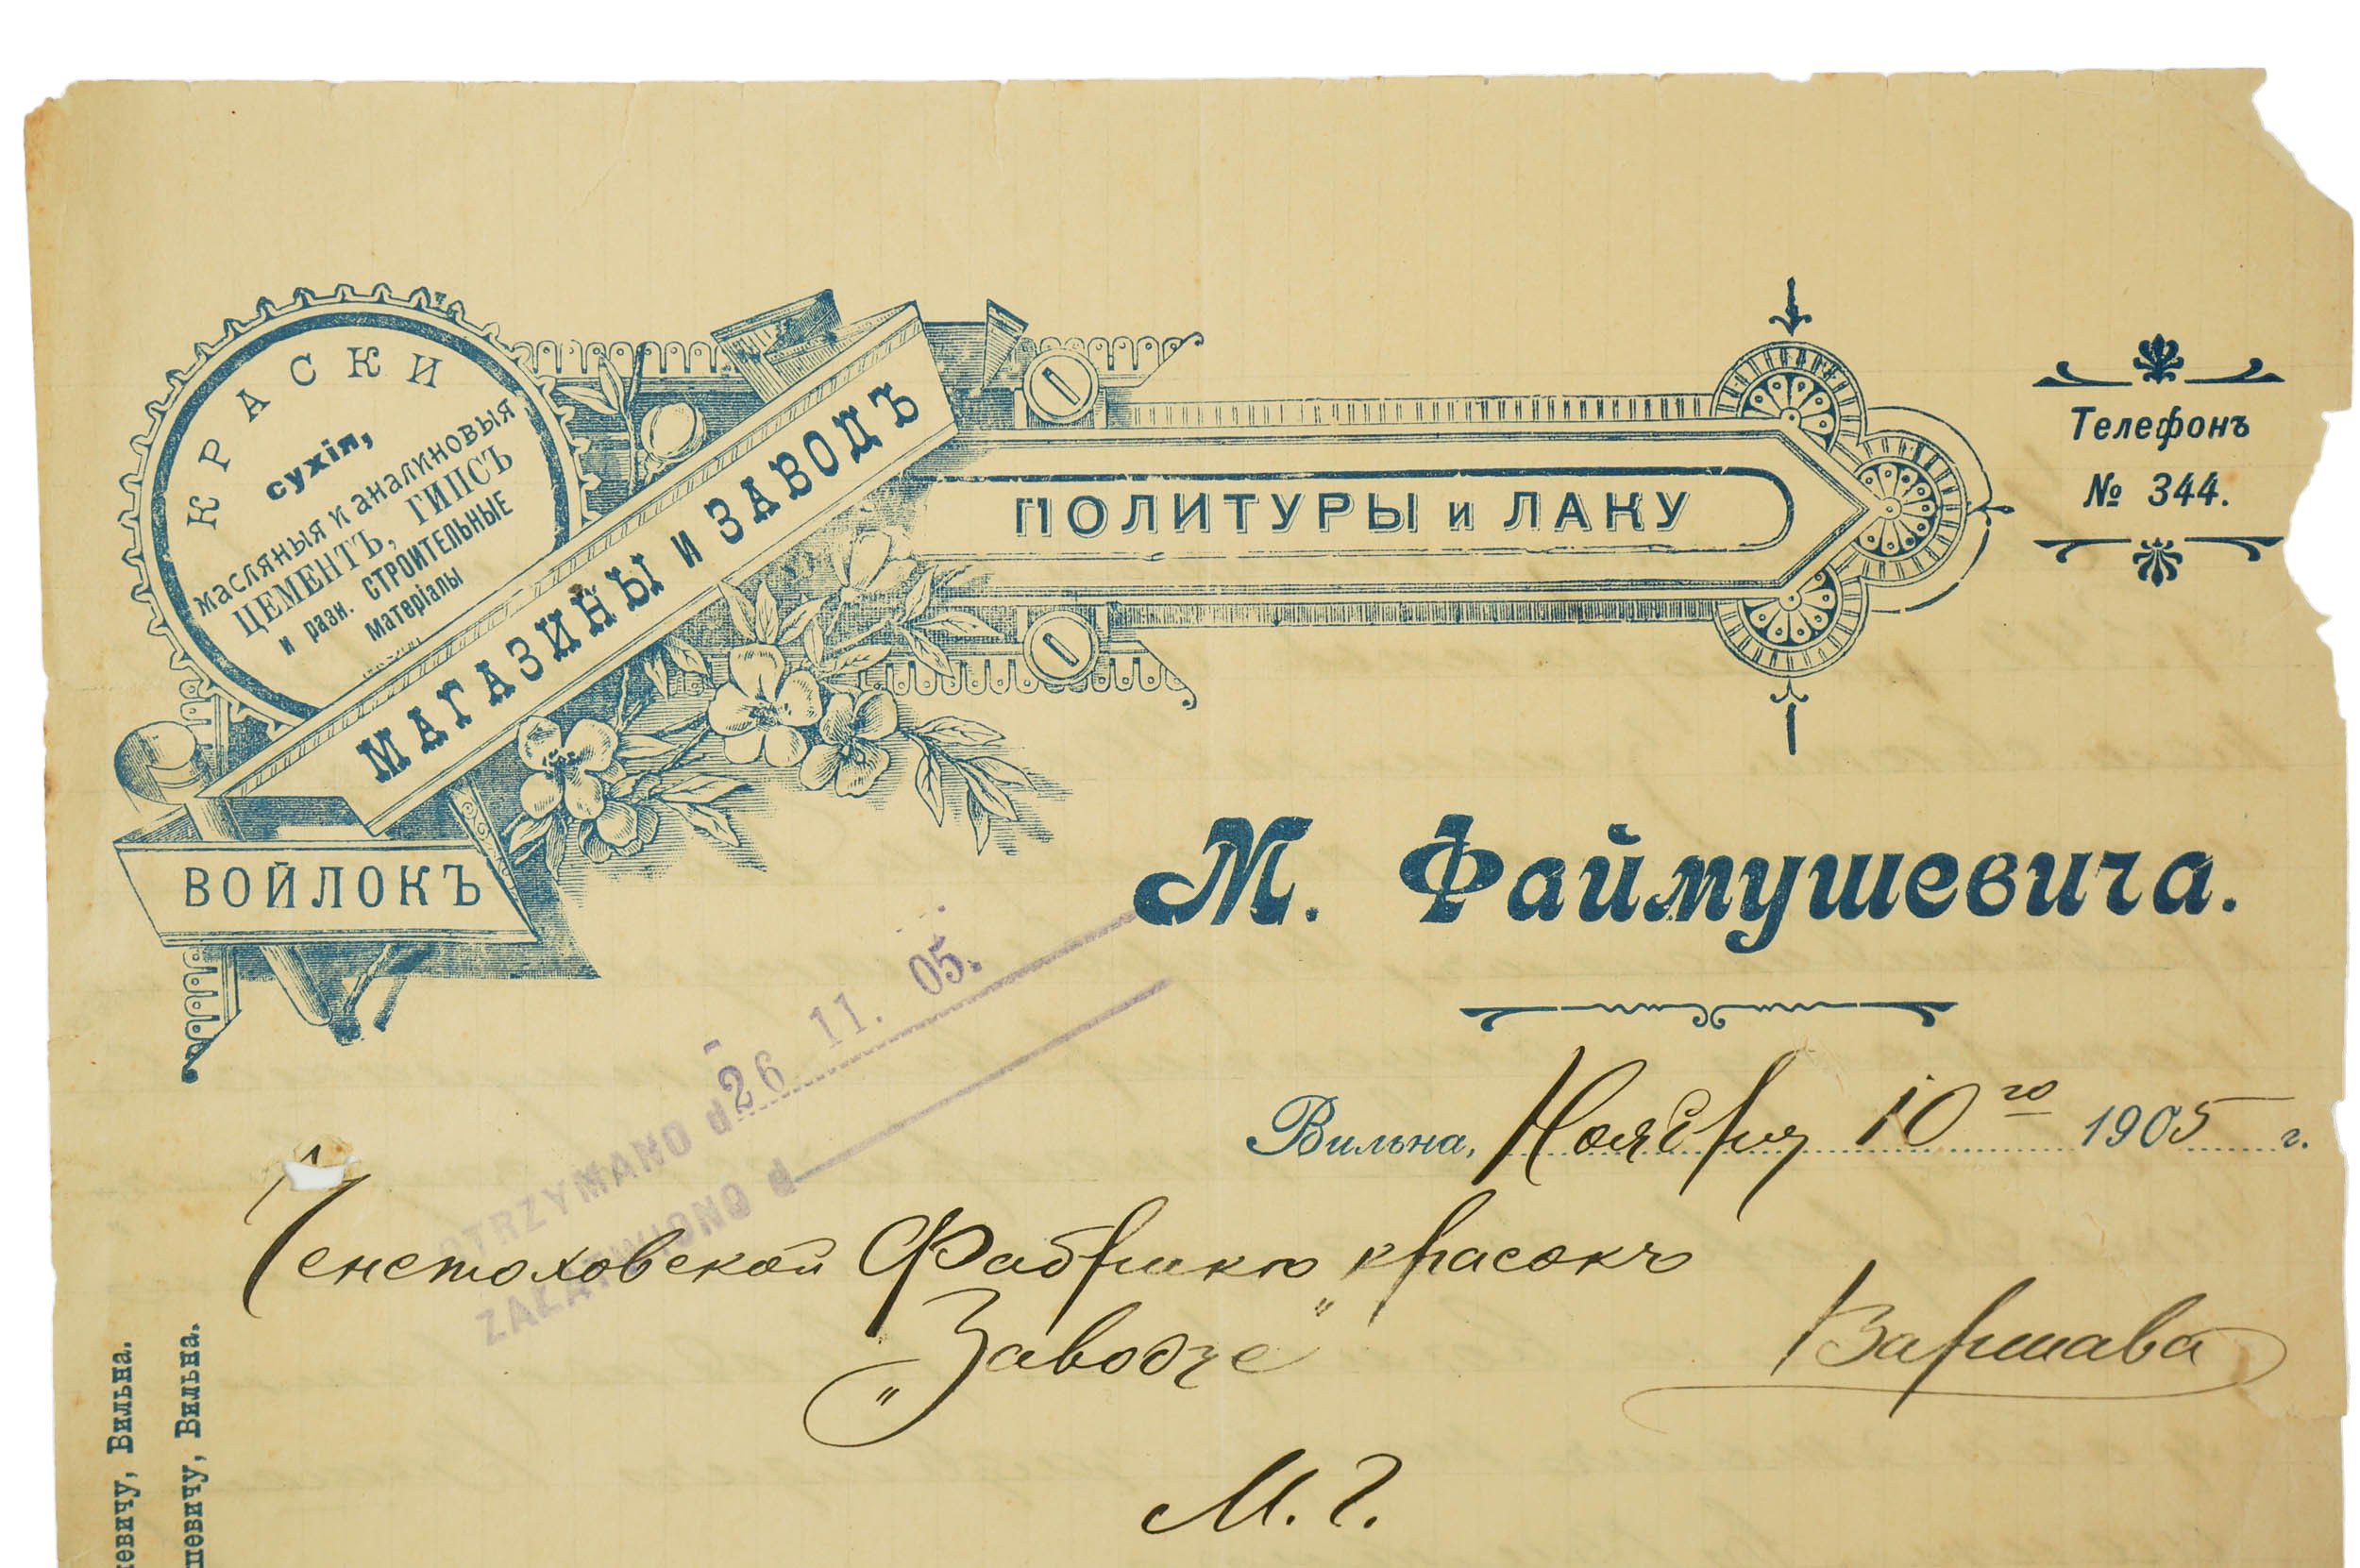 КРАСКИ
сухія,
масляныя и аналиновыя
ЦЕМЕНТЪ, ГИПСЪ
и разн. СТРОИТЕЛЬНЫЕ
матеріалы
МАГАЗИНЫ и ЗАВОДЪ
ПОЛИТУРЫ и ЛАКУ
ВОЙЛОКЪ
Телефонъ
№ 344.
М. Файмушевича.
OTRZYMANO d 26 11. 05.
ZAŁATWIONO d
Вильна, Ноября 10го 1905 г.
Ченстоховской Фабрикѣ красокъ
„Заводзе"
Варшава
М. Г.
евичу, Вильна.
шевичу, Вильна.